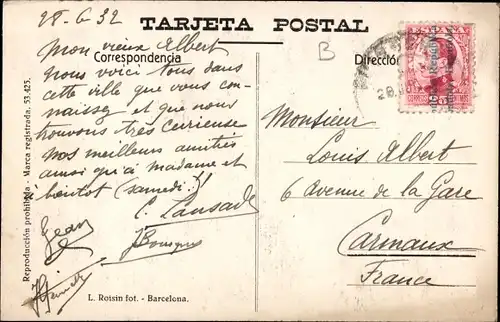 28-6 32
TARJETA POSTAL
B
Correspondencia
Dirección
Mon vieux Albert
nous voici tous dans
cette ville que vous con-
naissez et que nous
trouvons très curieuse
Nos meilleurs amitiés
ainsi qu'à madame et
bientôt (samedi)
C. Lansade
Jean
J Bousquet
Monsieur
Louis Albert
6 Avenue de la Gare
Carmaux
France
L. Roisin fot. - Barcelona.
Reproducción prohibida - Marca registrada. 53.425.